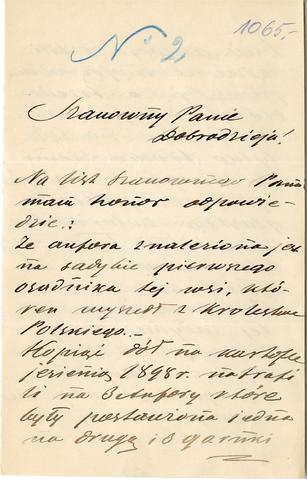 1065,-
No 2
Szanowny Panie
Dobrodzieju!
Na list Szanownego Pana
mam honor odpowie-
dzie.:
Że amfora znaleziona jest
na sadybie pierwszego
osadnika tej wsi, któ-
ren wyszedł z Krolestwa
Polskiego.-
Kopiąc dół na kartofle
jesienią 1898 r. natrafi
li na 3 amfory które
były postawione jedna
na drugą i 3 garnki